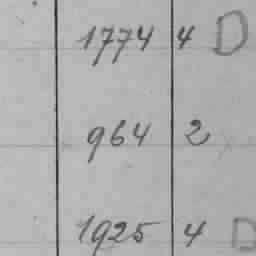 1774 4 D
964 2
1925 4 D